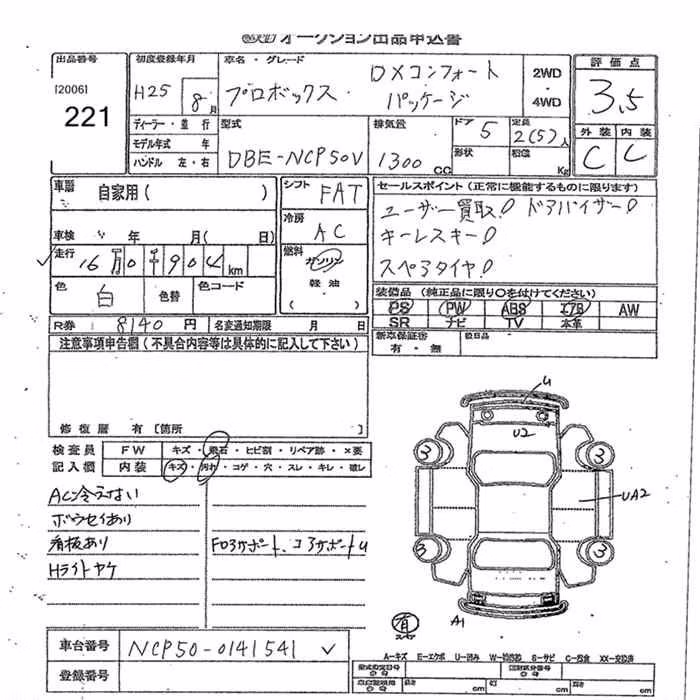 オークション出品申込書
出品番号 初度登録年月 車名・グレード 評価点
[2006] H25 8月 プロボックス DXコンフォートパッケージ 2WD・4WD 3.5
221
ディーラー・並行 型式 排気量 ドア 5 定員 2(5)人 外装 内装
モデル年式 年 形状 積載 Kg C C
ハンドル 左・右 DBE-NCP50V 1300 CC
車歴 自家用( ) シフト FAT セールスポイント(正常に機能するものに限ります)
冷房 AC ユーザー買取! ドアバイザー!
車検 年 月( 日) キーレスキー!
走行 16万0千904km 燃料 ガソリン・軽油 スペアタイヤ!
色 白 色替 色コード 装備品(純正品に限り○を付けてください)
PS PW ABS エアB AW
R券 8140円 名変通知期限 月 日 SR ナビ TV 本革
注意事項申告欄(不具合内容等は具体的に記入して下さい) 新車保証書 有・無 後日品
修復歴 有[箇所
検査員 FW キズ・飛石・ヒビ割・リペア跡・×要
記入欄 内装 キズ・汚れ・コゲ・穴・スレ・キレ・破レ
U
U2
3 3
UA2
3 3
AC冷えない
ボウセイあり
看板あり Fロアサポート、コアサポートU
Hライトヤケ
有
A1
車台番号 NCP50-0141541
A-キズ E-エクボ U-凹み S-サビ C-腐食 XX-交換済
登録番号
cm cm cm